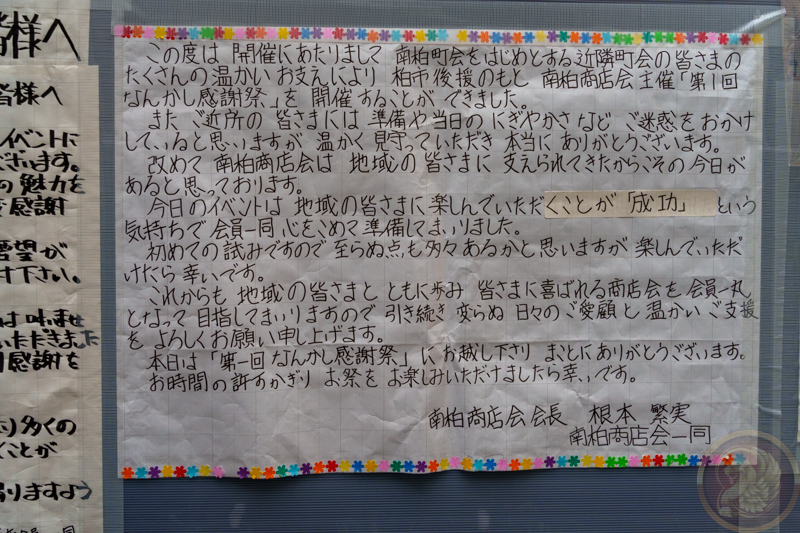 皆様へ
皆様へ
イベントに
ございます。
の魅力を
感謝
要望が
下さい。
は
いただきました
感謝を
多くの
ことが
りますよう
この度は 開催にあたりまして 南柏町会をはじめとする近隣町会の皆さまの
たくさんの温かいお支えにより 柏市後援のもと 南柏商店会主催「第1回
なんかし感謝祭」を 開催することが できました。
また ご近所の 皆さまには 準備や当日の にぎやかさ など ご迷惑を おかけ
していると思いますが 温かく 見守っていただき 本当に ありがとうございます。
改めて 南柏商店会は 地域の 皆さまに 支えられてきたからこその今日が
あると思っております。
今日のイベントは 地域の皆さまに楽しんでいただくことが「成功」という
気持ちで 会員一同 心をこめて 準備してまいりました。
初めての試みですので 至らぬ点も多々あるかと思いますが 楽しんでいただ
けたら 幸いです。
これからも 地域の皆さまと ともに歩み 皆さまに喜ばれる商店会を 会員一丸
となって 目指してまいりますので 引き続き 変らぬ 日々の ご愛顧と 温かい ご支援
を よろしくお願い申し上げます。
本日は「第一回 なんかし感謝祭」に お越し下さり まことにありがとうございます。
お時間の許すかぎり お祭を お楽しみいただけましたら幸いです。
南柏商店会会長 根本 繁実
南柏商店会一同